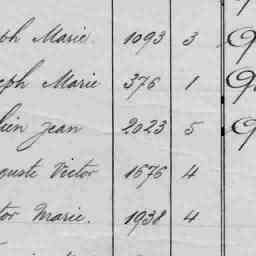 ph Marie. 1093 3
eph Marie 376 1
lien Jean 2023 5
guste Victor 1676 4
tor Marie. 1938 4